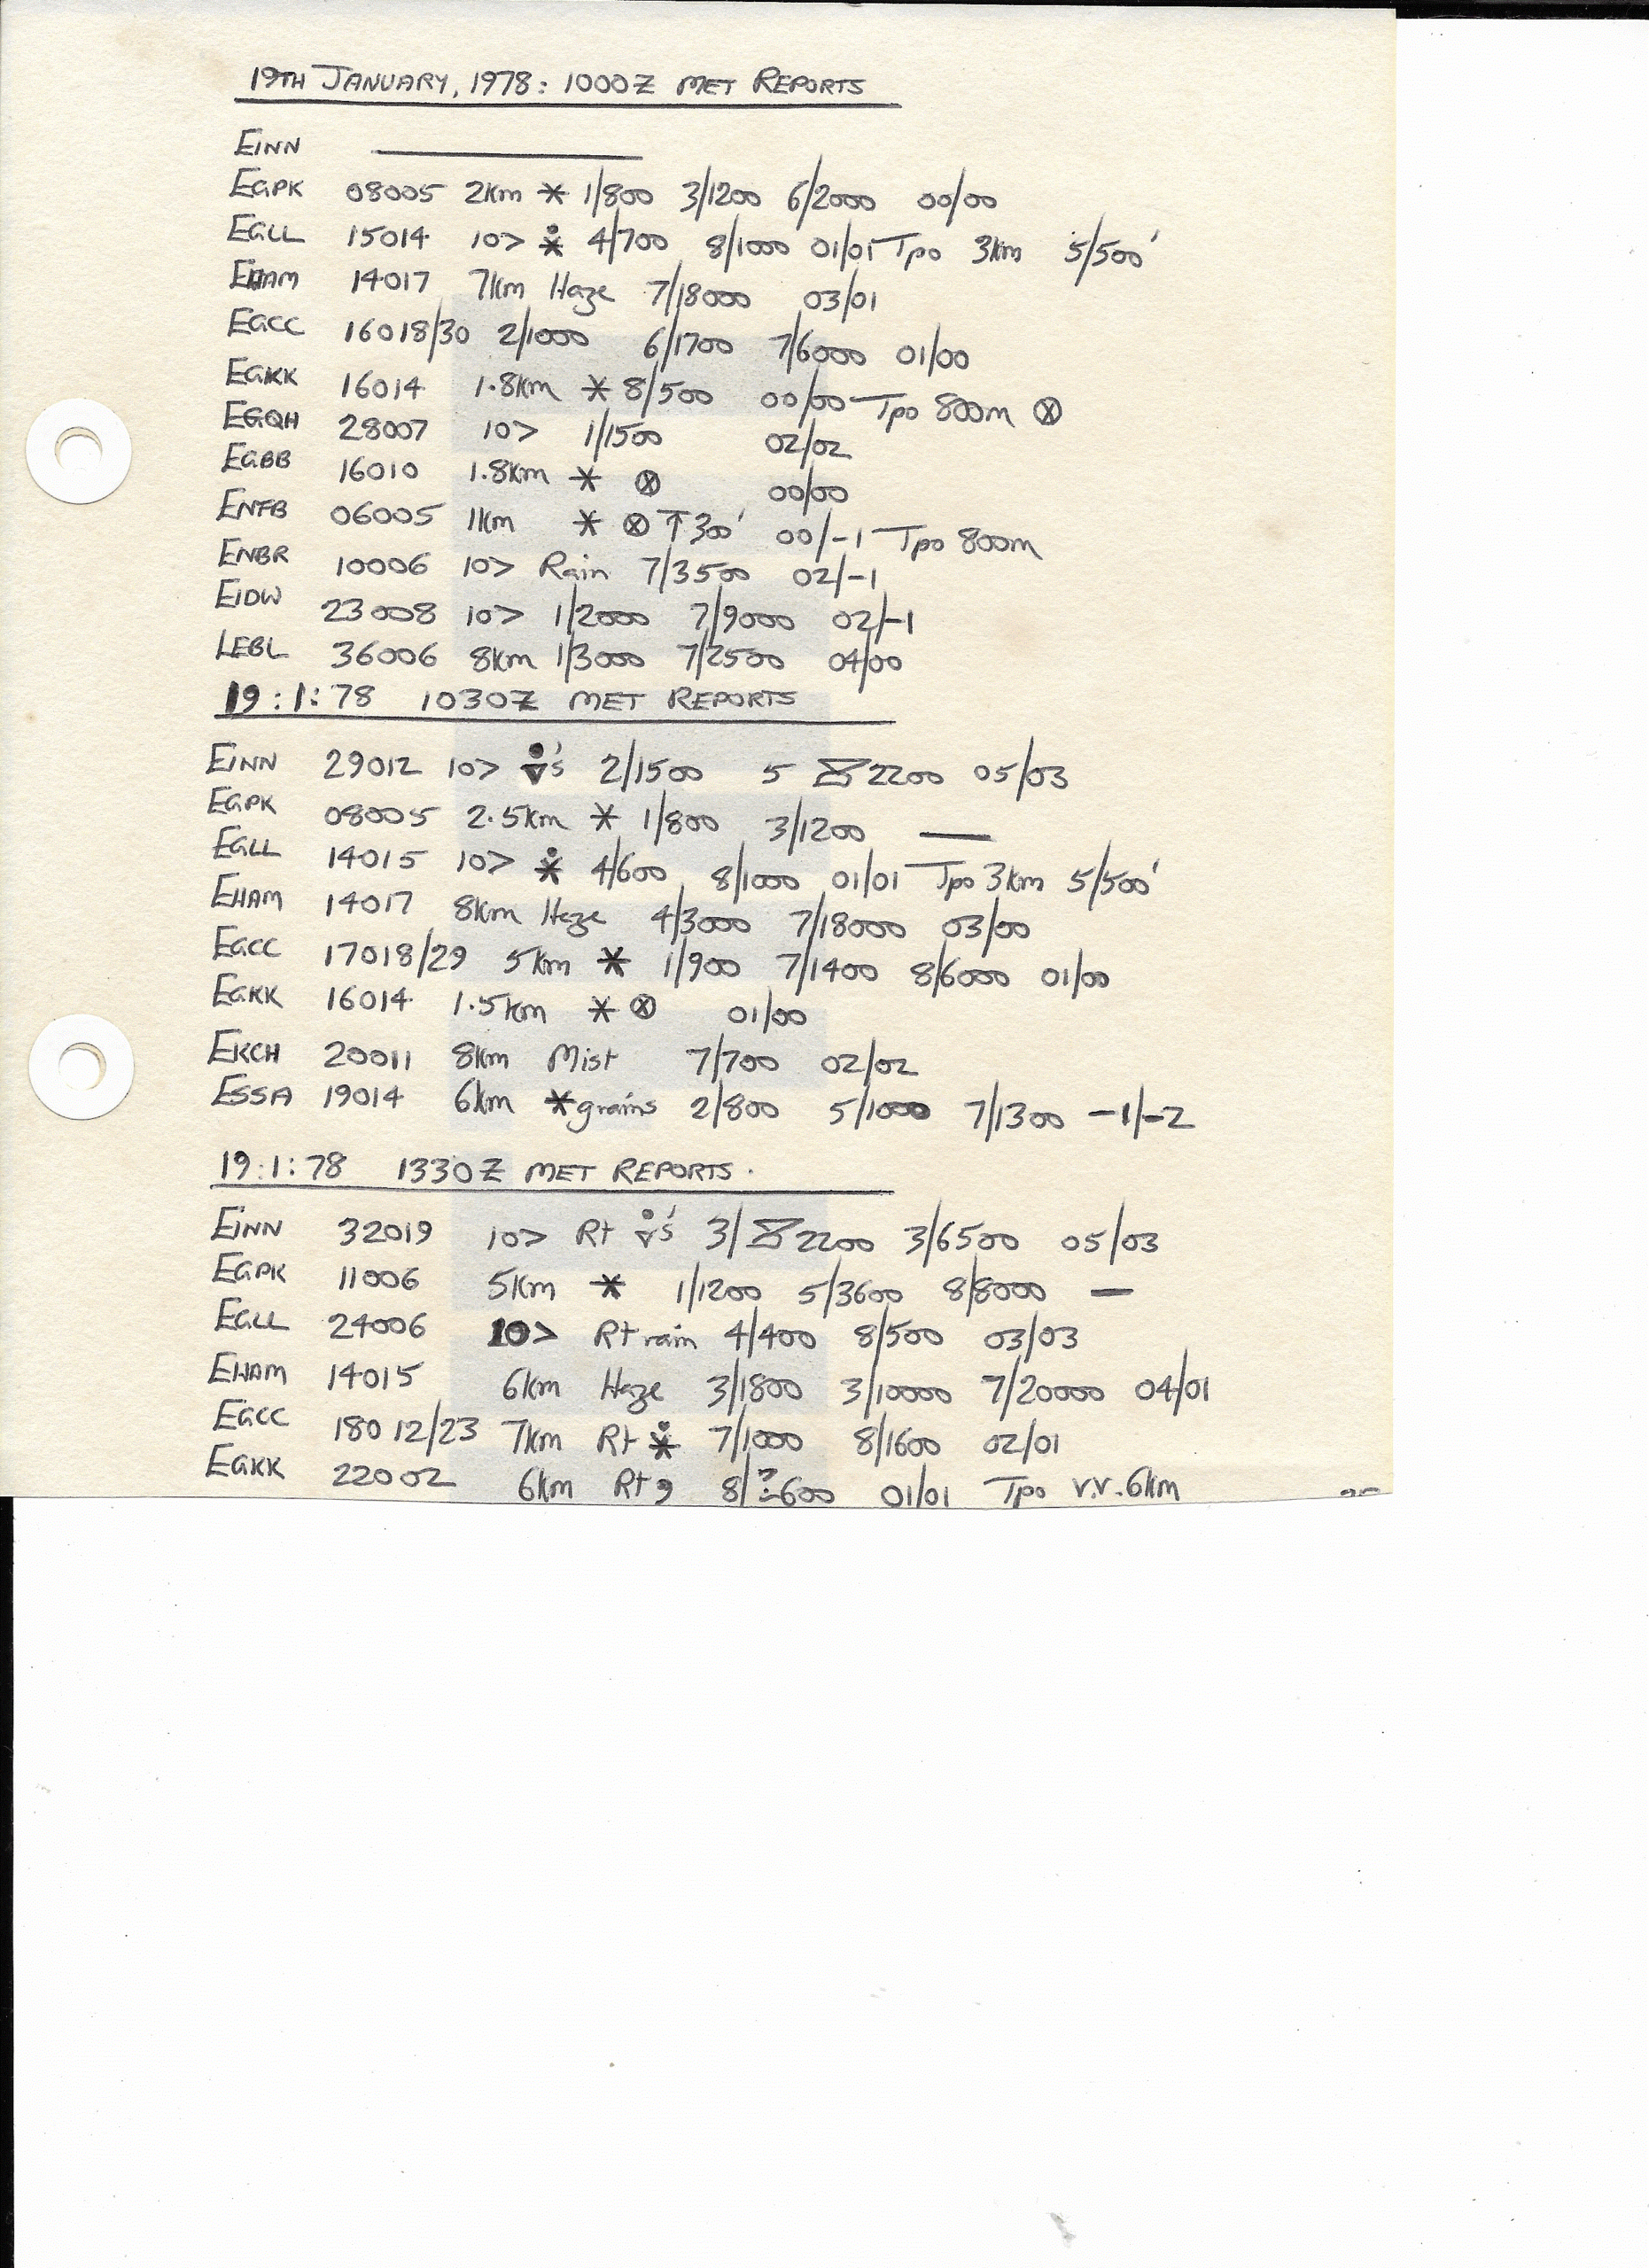 19TH JANUARY, 1978: 1000Z MET REPORTS
EINN ———
EGPK 08005 2km * 1/800 3/1200 6/2000 00/00
EGLL 15014 10> * 4/700 8/1000 01/01 Tpo 3km 5/500'
EHAM 14017 7km Haze 7/18000 03/01
EGCC 16018/30 2/1000 6/1700 7/6000 01/00
EGKK 16014 1.8km * 8/500 00/00 Tpo 800m ⊗
EGQH 28007 10> 1/1500 02/02
EGBB 16010 1.8km * ⊗ 00/00
ENFB 06005 1km * ⊗ ↑300' 00/-1 Tpo 800m
ENBR 10006 10> Rain 7/3500 02/-1
EIDW 23008 10> 1/2000 7/9000 02/-1
LEBL 36006 8km 1/3000 7/2500 04/00
19:1:78 1030Z MET REPORTS
EINN 29012 10> 's 2/1500 5 2200 05/03
EGPK 08005 2.5km * 1/800 3/1200 —
EGLL 14015 10> * 4/600 8/1000 01/01 Tpo 3km 5/500'
EHAM 14017 8km Haze 4/3000 7/18000 03/00
EGCC 17018/29 5km * 1/900 7/1400 8/6000 01/00
EGKK 16014 1.5km * ⊗ 01/00
EKCH 20011 8km Mist 7/700 02/02
ESSA 19014 6km *grains 2/800 5/1000 7/1300 -1/-2
19:1:78 1330Z MET REPORTS.
EINN 32019 10> Rt 's 3/ 2200 3/6500 05/03
EGPK 11006 5km * 1/1200 5/3600 8/8000 —
EGLL 24006 10> Rt rain 4/400 8/500 03/03
EHAM 14015 6km Haze 3/1800 3/10000 7/20000 04/01
EGCC 18012/23 7km Rt * 7/1000 8/1600 02/01
EGKK 22002 6km Rt , 8/?600 01/01 Tpo v.v. 6km